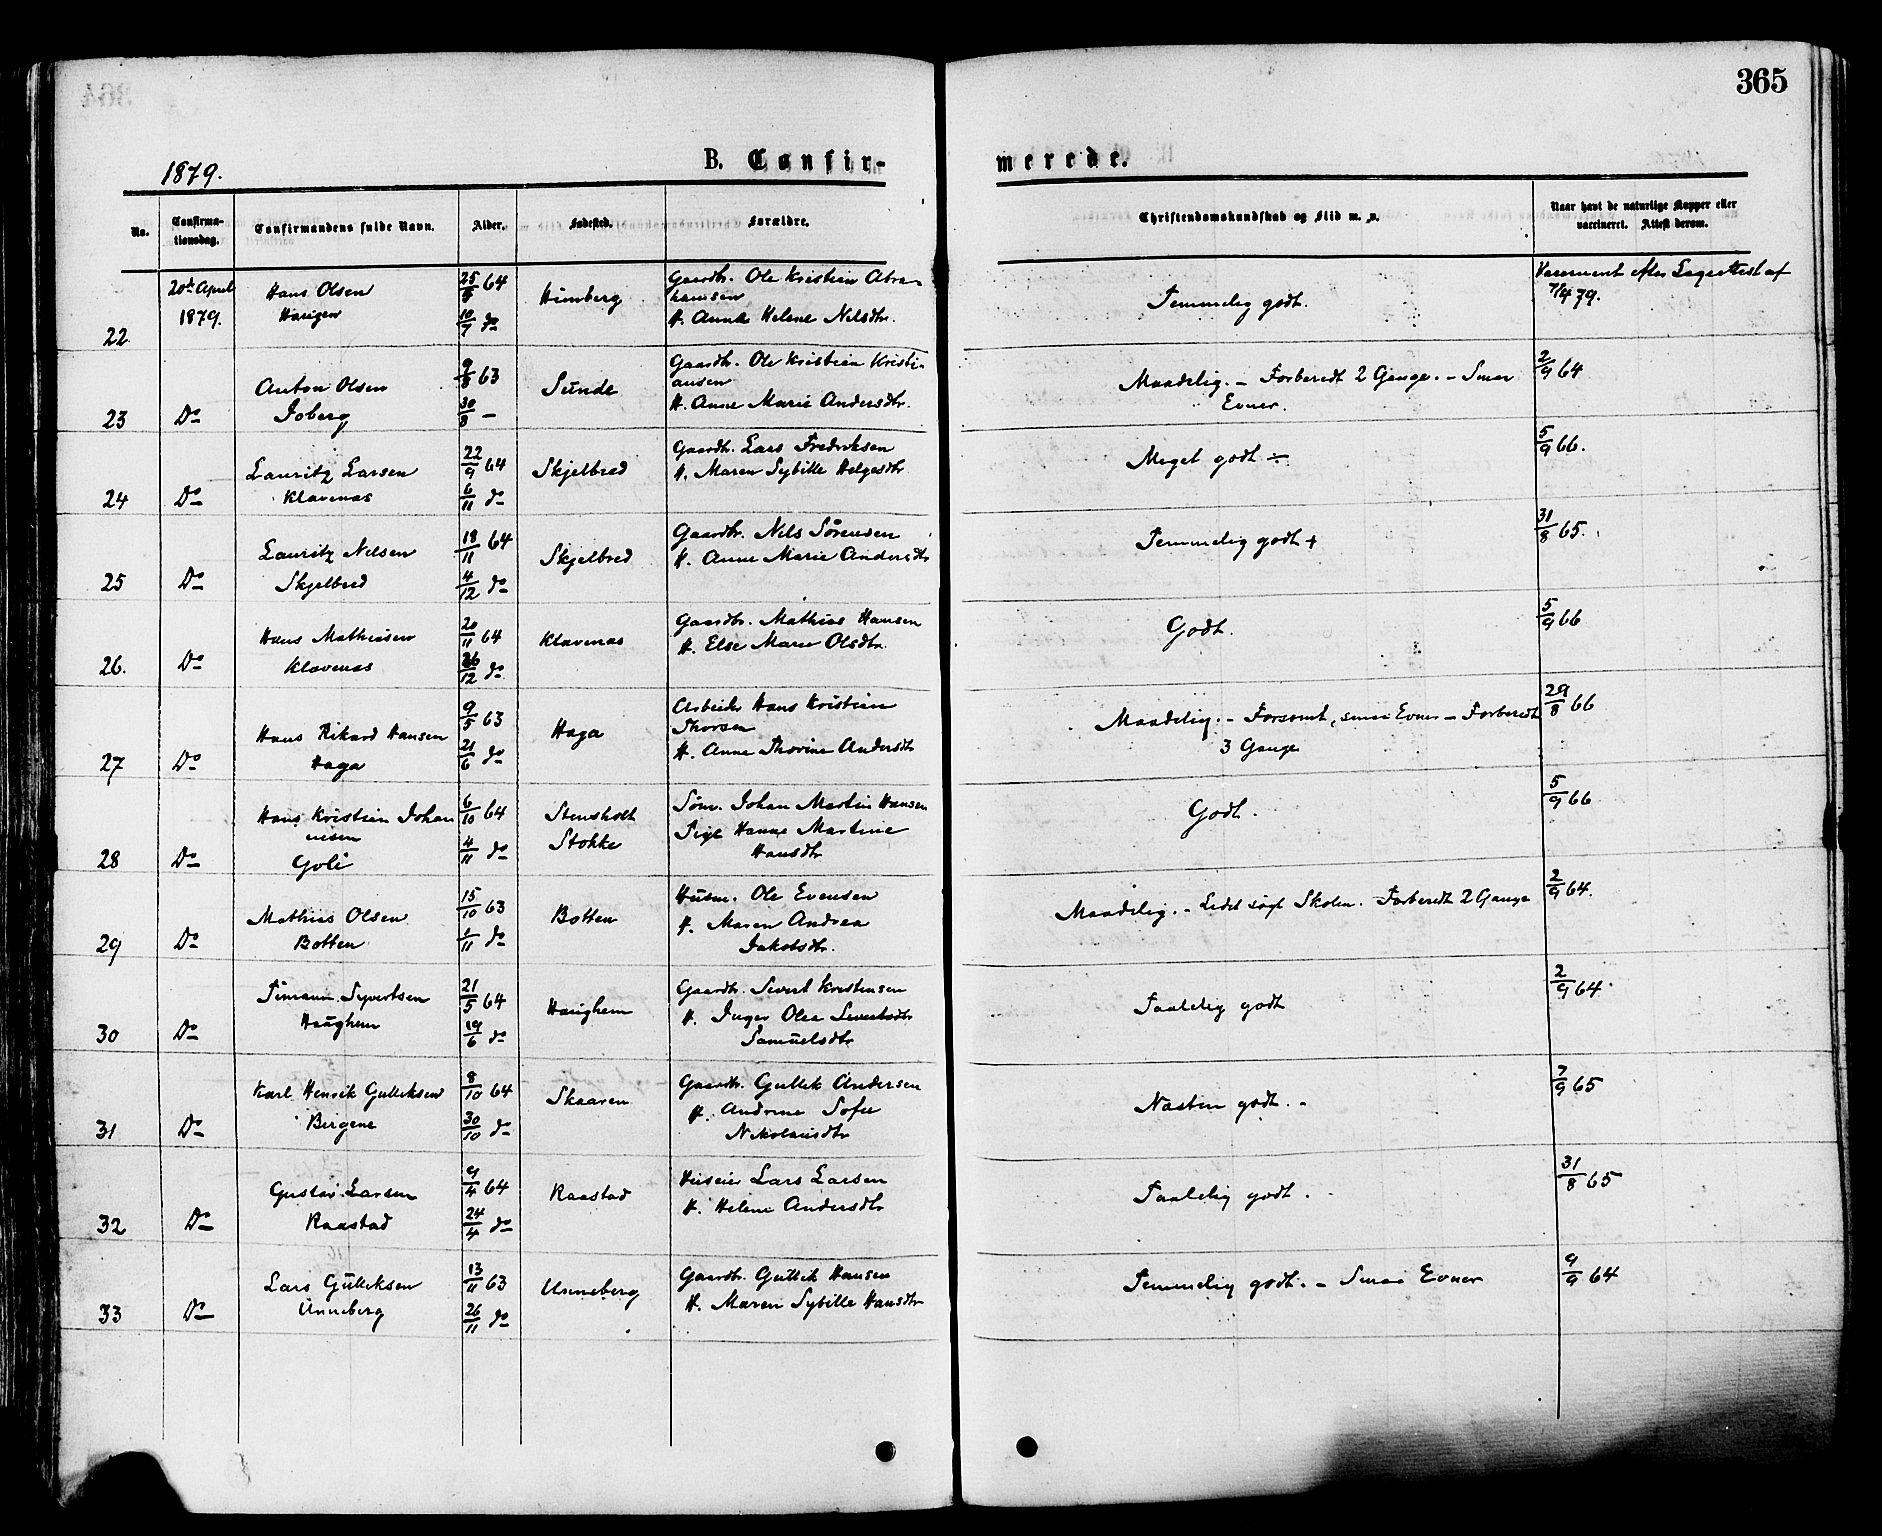 365
1879.
B. Confirmerede.
No. Confirmationsdag. Confirmandens fulde Navn. Alder. Fødested. Forældre. Christendomskundskab og Flid m. v. Naar havt de naturlige Kopper eller vaccineret. Attest derom.
22 20de April 1879. Hans Olsen
25/5 64 10/7 do Himberg
Gaardbr. Ole Kristian Abrahamsen
H. Anne Helene Nilsdtr.
Temmelig godt.
7/4 79.
23 Do Anton Olsen
Joberg
9/8 63 30/8 – Sunde
Gaardbr. Ole Kristian Kristiansen
H. Anne Marie Andersdtr.
Maadelig. – Forberedt 2 Gange. – Smaa
Evner.
2/9 64
24 Do Lauritz Larsen
Klavenas
22/9 64 6/11 do Skjelbred
Gaardbr. Lars Fredriksen
H. Maren Sybille Helgesdtr
Meget godt ÷
5/9 66.
25 Do Lauritz Nilsen
Skjelbred
18/11 64 4/12 do Skjelbred
Gaardbr. Nils Sørensen
H. Anne Marie Andersdtr
Temmelig godt +
31/8 65.
26. Do Hans Mathiasen
Klavenas
20/11 64 26/12 do Klavenas
Gaardbr. Mathias Hansen
H. Else Marie Olsdtr.
Godt.
5/9 66
27 Do Hans Rikard Hansen
Haga
9/5 63 21/6 do Haga
Arbeider Hans Kristian
Thorsen
H. Anne Thorine Andersdtr
Maadelig. – Forsømt, smaa Evner – Forberedt
3 Gange
29/8 66
28 Do Hans Kristian Johannesen
Goli
6/10 64 4/11 do Stensholt
Stokke
Søm. Johan Martin Hansen
Pige Hanne Martine
Hansdtr
Godt.
5/9 66
29 Do Mathias Olsen
Botten
15/10 63 1/11 do Botten
Husm. Ole Evensen
H. Maren Andrea
Jakobsdtr.
Maadelig. – Lidet søgt Skolen. – Forberedt 2 Gange
2/9 64.
30 Do Simann Syvertsen
Haughem
21/5 64 19/6 do Haughem
Gaardbr. Sivert Kristensen
H. Inger Olea Sivertsdtr
Samuelsdtr
Taalelig godt
2/9 64.
31 Do Karl Henrik Gulliksen
Bergene
8/10 64 30/10 do Skaaren
Gaardbr. Gullik Andersen
H. Andrine Sofie
Nikolaisdtr
Næsten godt. –
7/9 65
32 Do Gustav Larsen
Raastad
9/4 64 24/4 do Raastad
Lars Larsen
H. Helene Andersdtr
Taalelig godt.
31/8 65
33 Do Lars Gulliksen
Unneberg
13/11 63 26/11 do Unneberg
Gaardbr. Gullik Hansen
H. Maren Sybille Hansdtr
Temmelig godt. – Smaa Evner
9/9 64